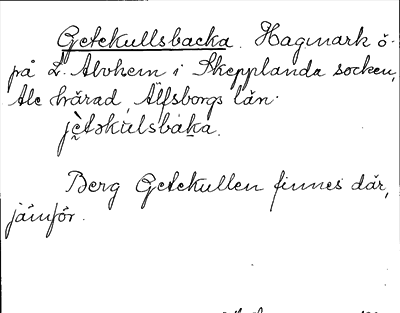 Getekullsbacka. Hagmark ö.
på L. Alvhem i Skepplanda socken,
Ale härad, Älfsborgs län.
jètəkulsbaka.
Berg Getekullen finnes där,
jämför.